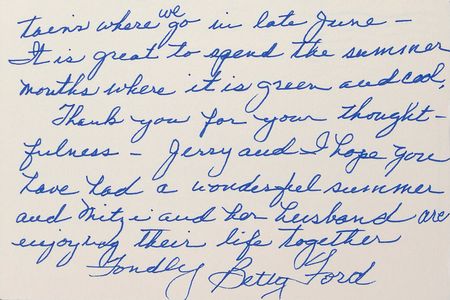 tains where we go in late June –
It is great to spend the summer
months where it is green and cool.
Thank you for your thought-
fulness – Jerry and I hope you
have had a wonderful summer
and Mitzi and her husband are
enjoying their life together
Fondly Betty Ford